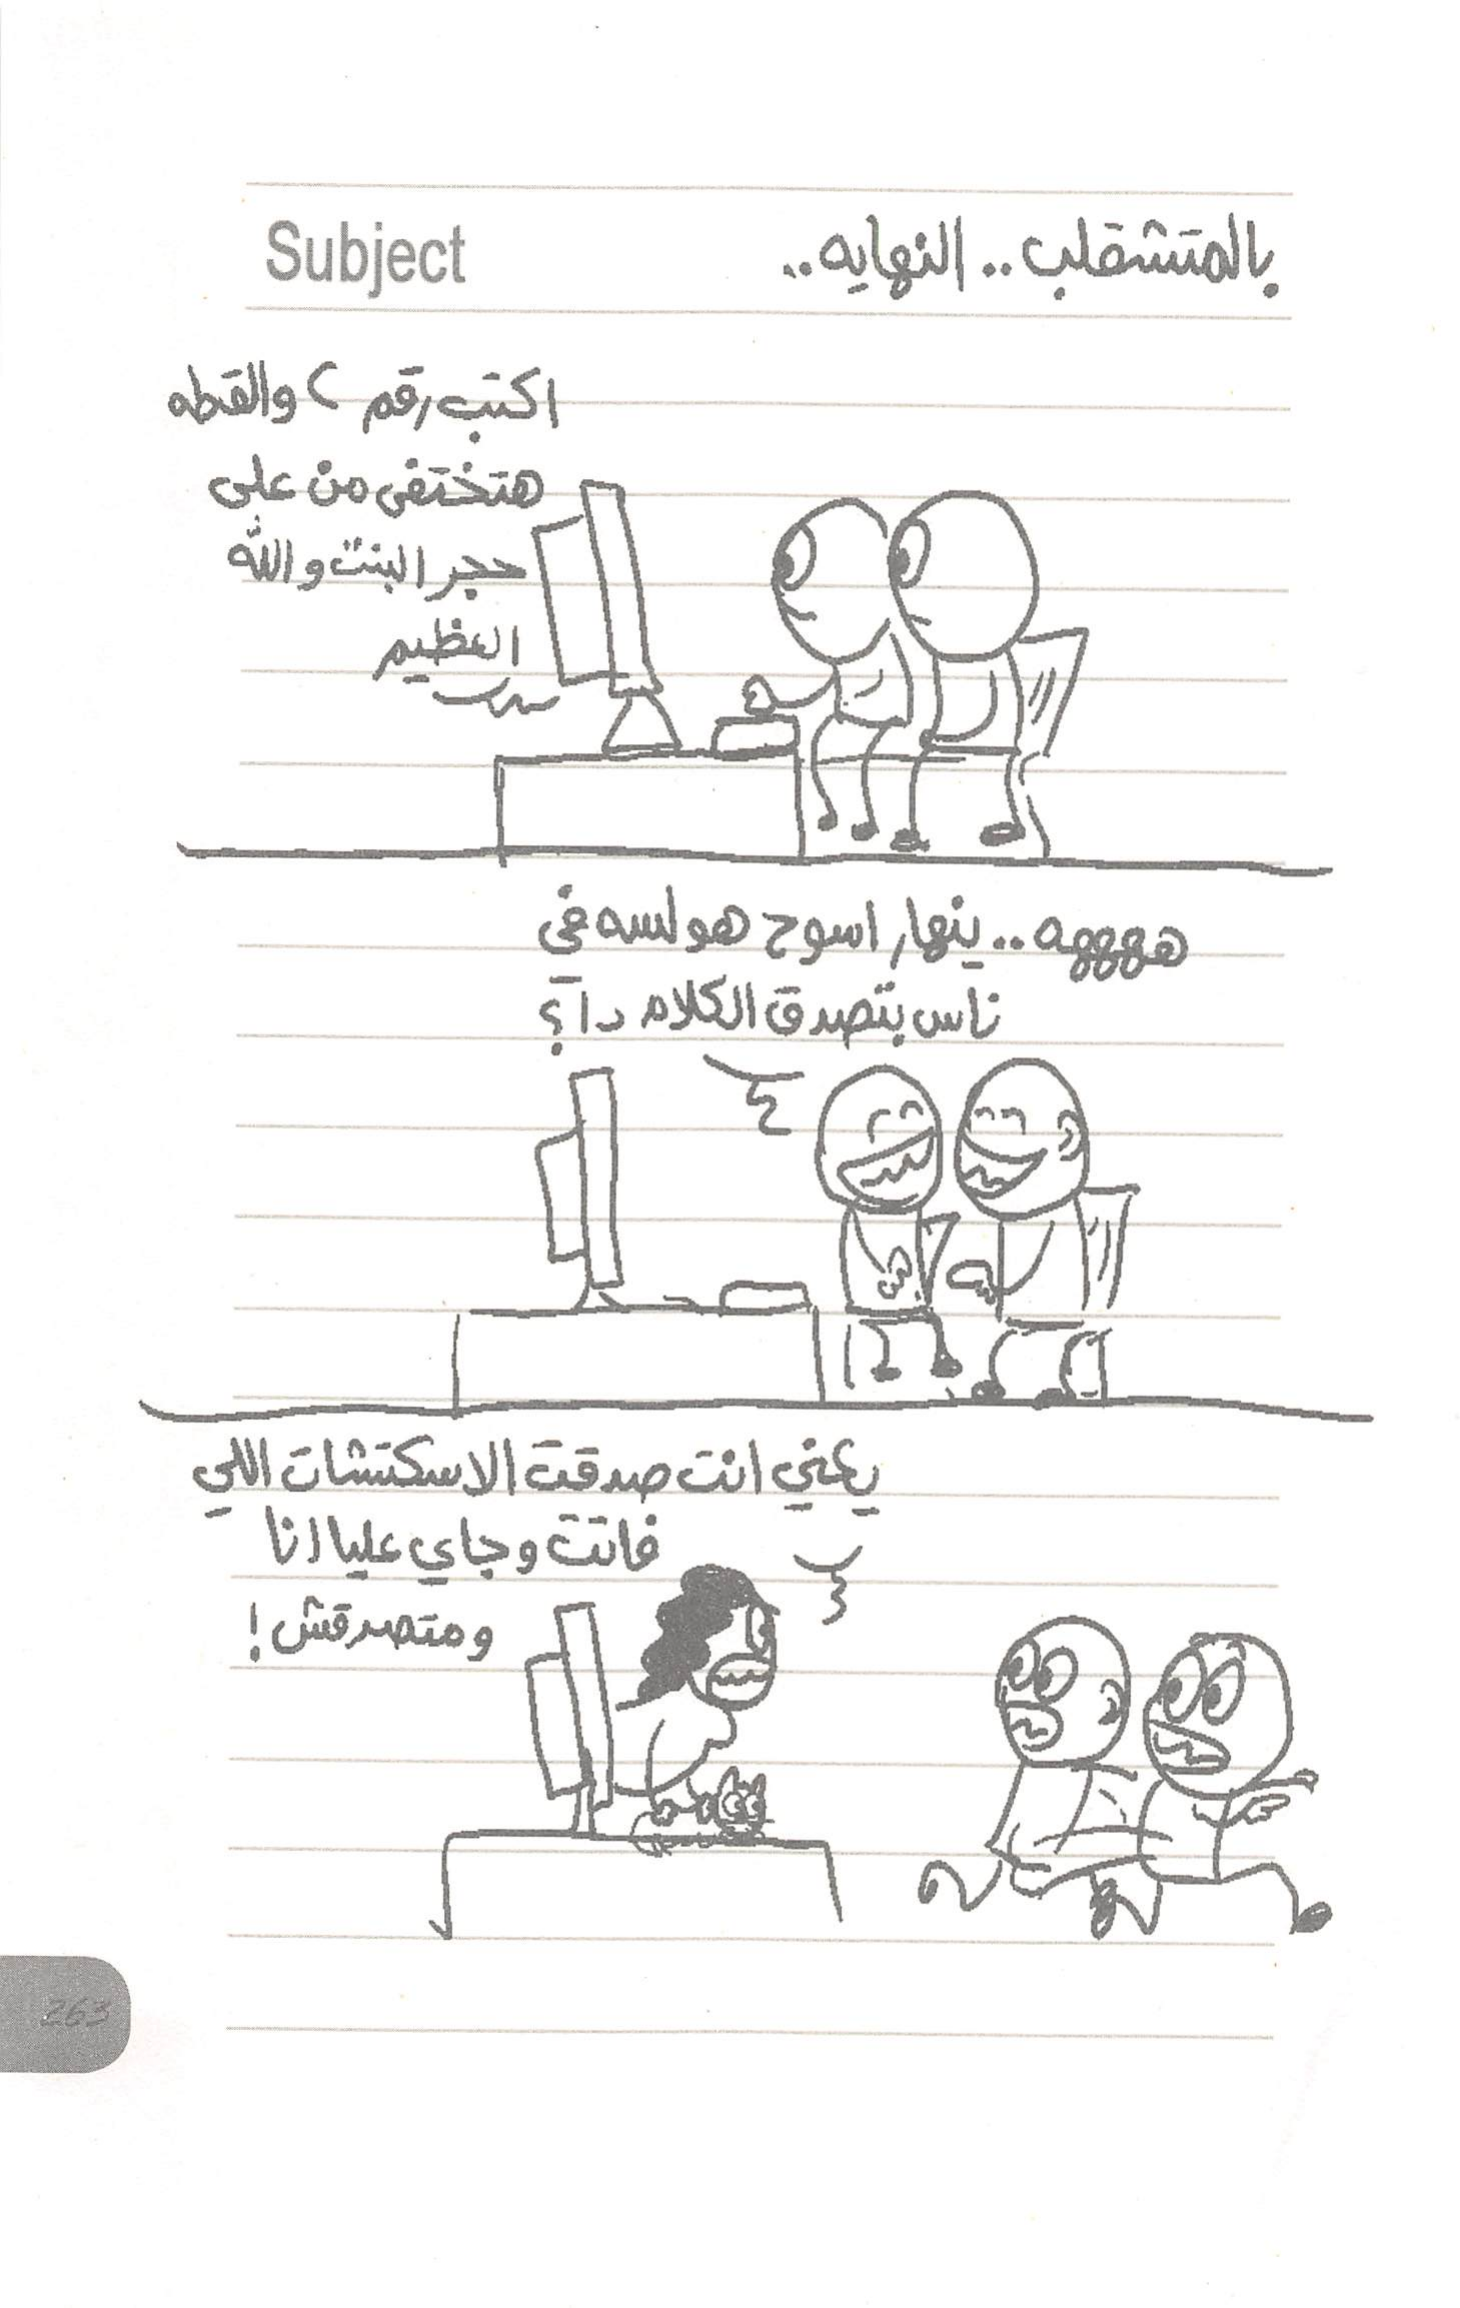 بالمتشقلب.. النهايه..
Subject
اكتب رقم ٢ والقطه
هتختفى من على
حجر البنت والله
العظيم
هههههه.. ينهار اسوح هو لسه في
ناس بتصدق الكلام دا؟
يعني انت صدقت الاسكتشات اللي
فاتت وجاي عليا انا
ومتصدقش!
263